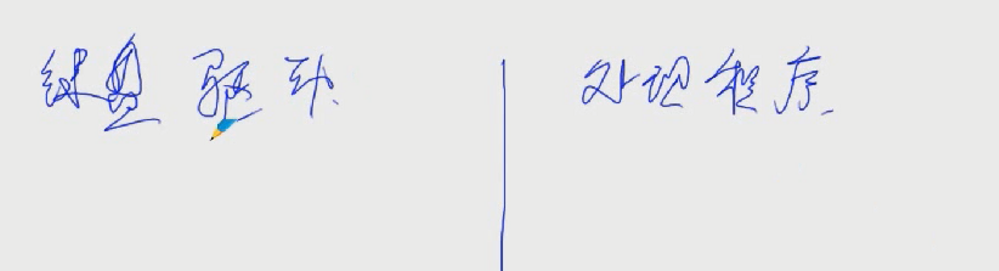 键盘驱动
处理程序